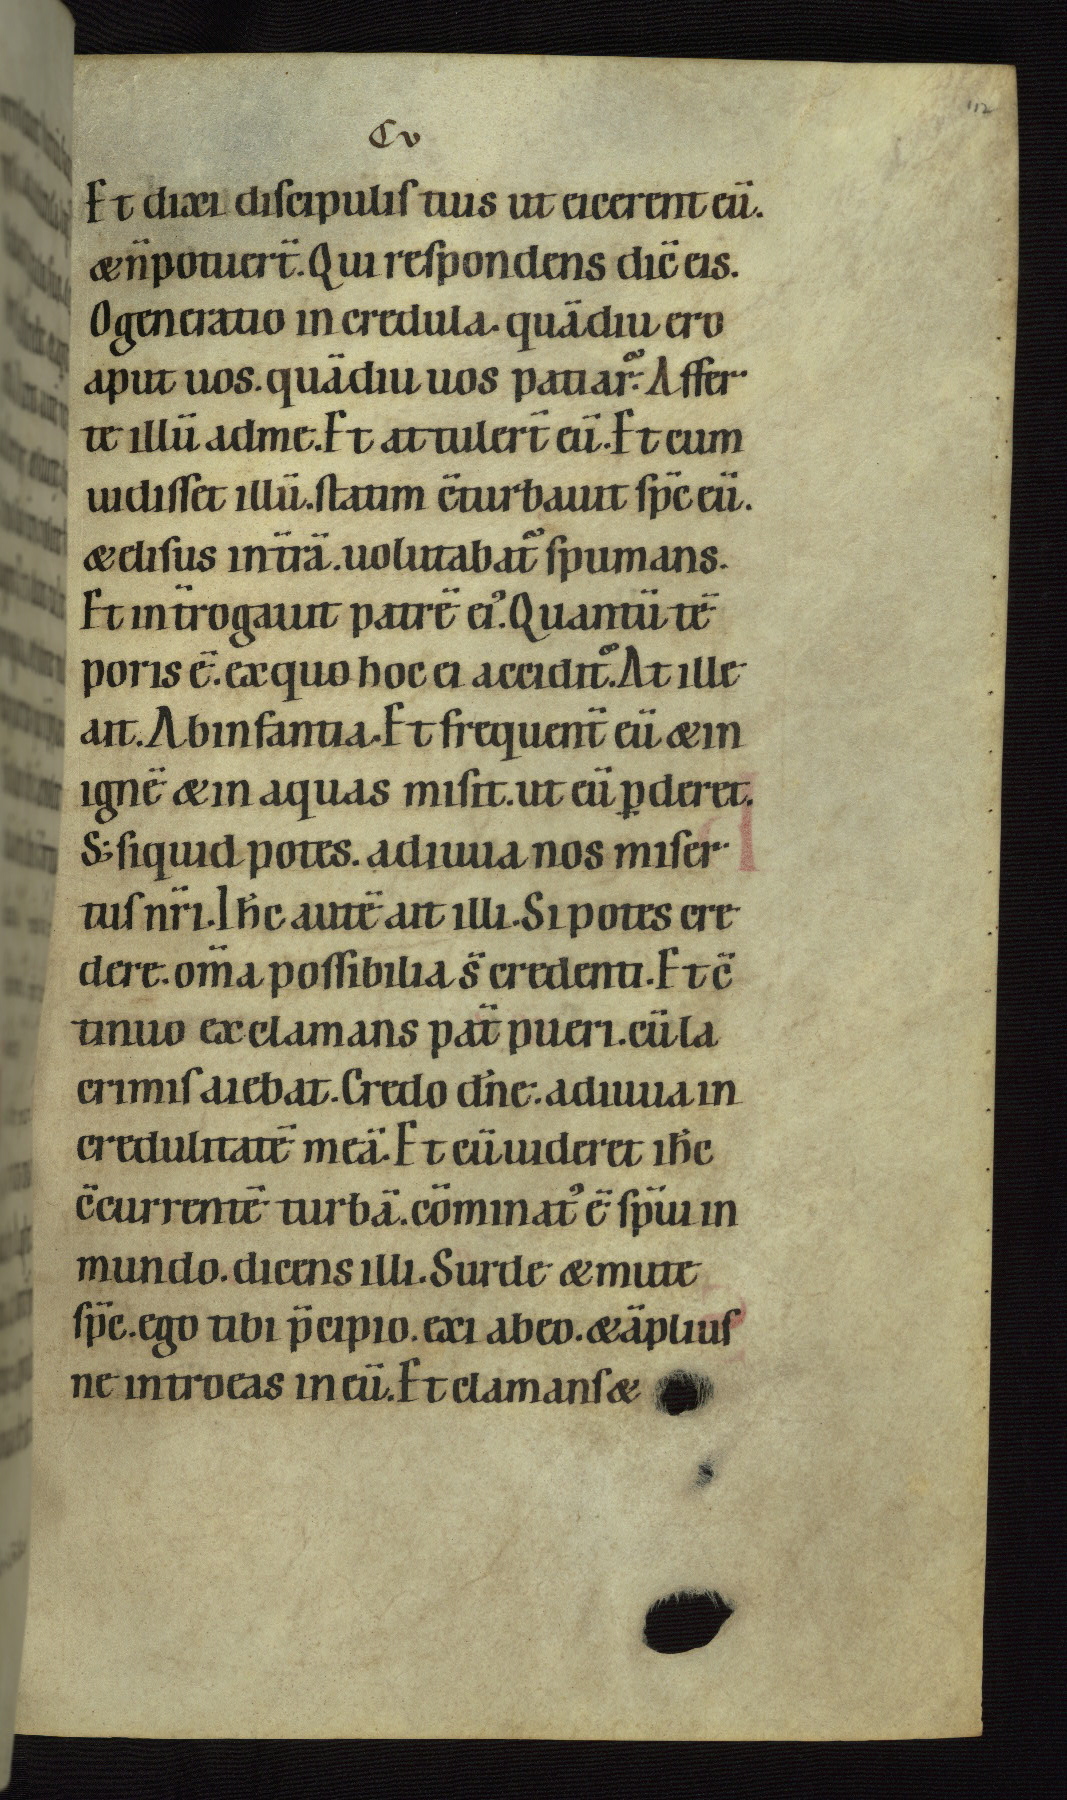 Cv
112
Et dixi discipulis tuis ut eicerent eū.
& n̄ potuerт̄. Qui respondens dic̄ eis.
O generatio in credula. quādiu ero
aput uos. quādiu uos patiar. Affer
te illū adme. Et attulert̄ eū. Et cum
uidisset illū. statim c̄turbauit sp̄c eū.
& elisus in t̄rā. uolutabat̄ spumans.
Et int̄rogauit patrē ei᾿. Quantū tē
poris ē. exquo hoc ei accidit. At ille
ait. Ab infantia. Et frequent̄ eū & in
ignē & in aquas misit. ut eū ꝑderet.
S; siquid potes. adiuua nos miser
tus nr̄i. Ih̄c autē ait illi. Si potes cre
dere. om̄a possibilia s̄ credenti. Et c̄
tinuo exclamans pat̄ pueri. cū la
crimis aiebat. Credo dn̄e. adiuua in
credulitatē meā. Et cū uideret ih̄c
c̄currentē turbā. cōminat᾿ ē sp̄ui in
mundo. dicens illi. Surde & mute
sp̄c. ego tibi p̄cipio. exi abeo. & āplius
ne introeas in eū. Et clamans &